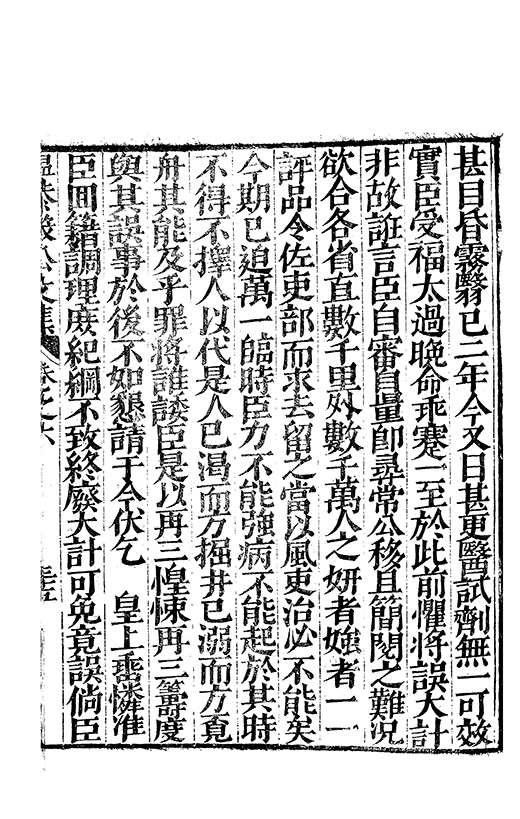 甚目昏霧翳已二年今又日甚更醫試劑無一可效
實臣受福太過晚命乖蹇一至於此前懼將誤大計
非故誑言臣自審自量卽尋常公移且簡閱之難况
欲合各省直數千里外數千萬人之妍者媸者一一
評品令佐吏部而求去留之當以風吏治必不能矣
今期已迫萬一臨時臣力不能強病不能起於其時
不得不擇人以代是人已渴而方掘井已溺而方覔
舟其能及乎罪將誰諉臣是以再三惶悚再三籌度
與其誤事於後不如懇請于今伏乞　皇上垂憐准
臣回籍調理庶紀綱不致終廢大計可免竟誤倘臣
溫恭毅公文集　卷之六